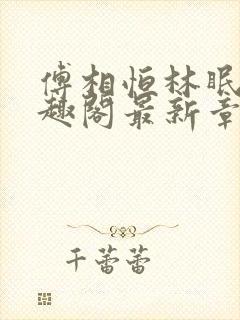 傅相恒林眠
趣阁最新章
千蕾蕾